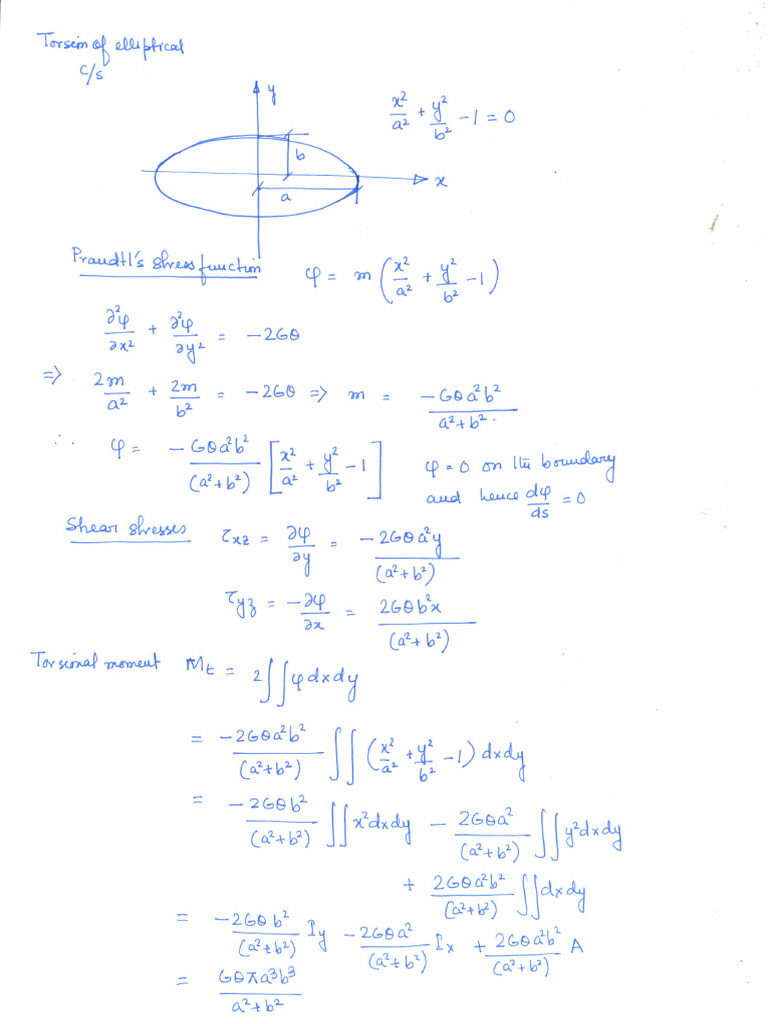 Torsion of elliptical
c/s
y
x²/a² + y²/b² - 1 = 0
b
x
a
Prandtl's stress function φ = m (x²/a² + y²/b² - 1)
∂²φ/∂x² + ∂²φ/∂y² = -2Gθ
=> 2m/a² + 2m/b² = -2Gθ => m = -Gθa²b²/a²+b².
∴ φ = -Gθa²b²/(a²+b²) [x²/a² + y²/b² - 1]
φ = 0 on the boundary
and hence dφ/ds = 0
Shear stresses τxz = ∂φ/∂y = -2Gθa²y/(a²+b²)
τyz = -∂φ/∂x = 2Gθb²x/(a²+b²)
Torsional moment Mt = 2∬φdxdy
= -2Gθa²b²/(a²+b²) ∬(x²/a² + y²/b² - 1) dxdy
= -2Gθb²/(a²+b²) ∬x²dxdy - 2Gθa²/(a²+b²) ∬y²dxdy
+ 2Gθa²b²/(a²+b²) ∬dxdy
= -2Gθb²/(a²+b²) Iy - 2Gθa²/(a²+b²) Ix + 2Gθa²b²/(a²+b²) A
= Gθπa³b³/a²+b²